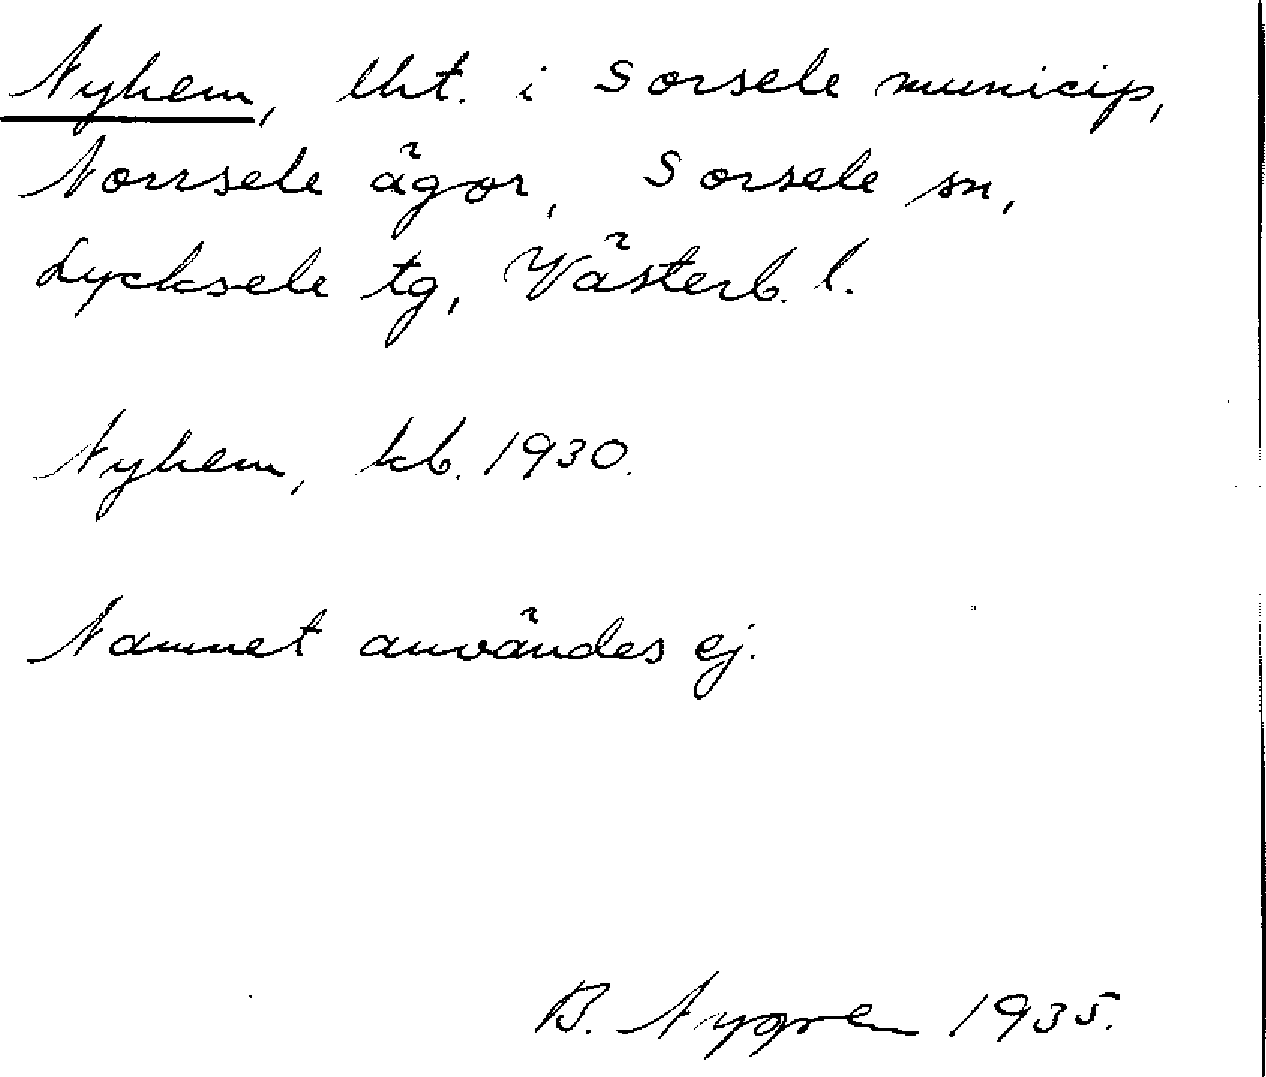 Nyhem, lht. i Sorsele municip,
Norrsele ägor, Sorsele sn,
Lycksele tg, Västerb. l.
Nyhem, kb. 1930.
Namnet användes ej.
B. Nygren 1935.